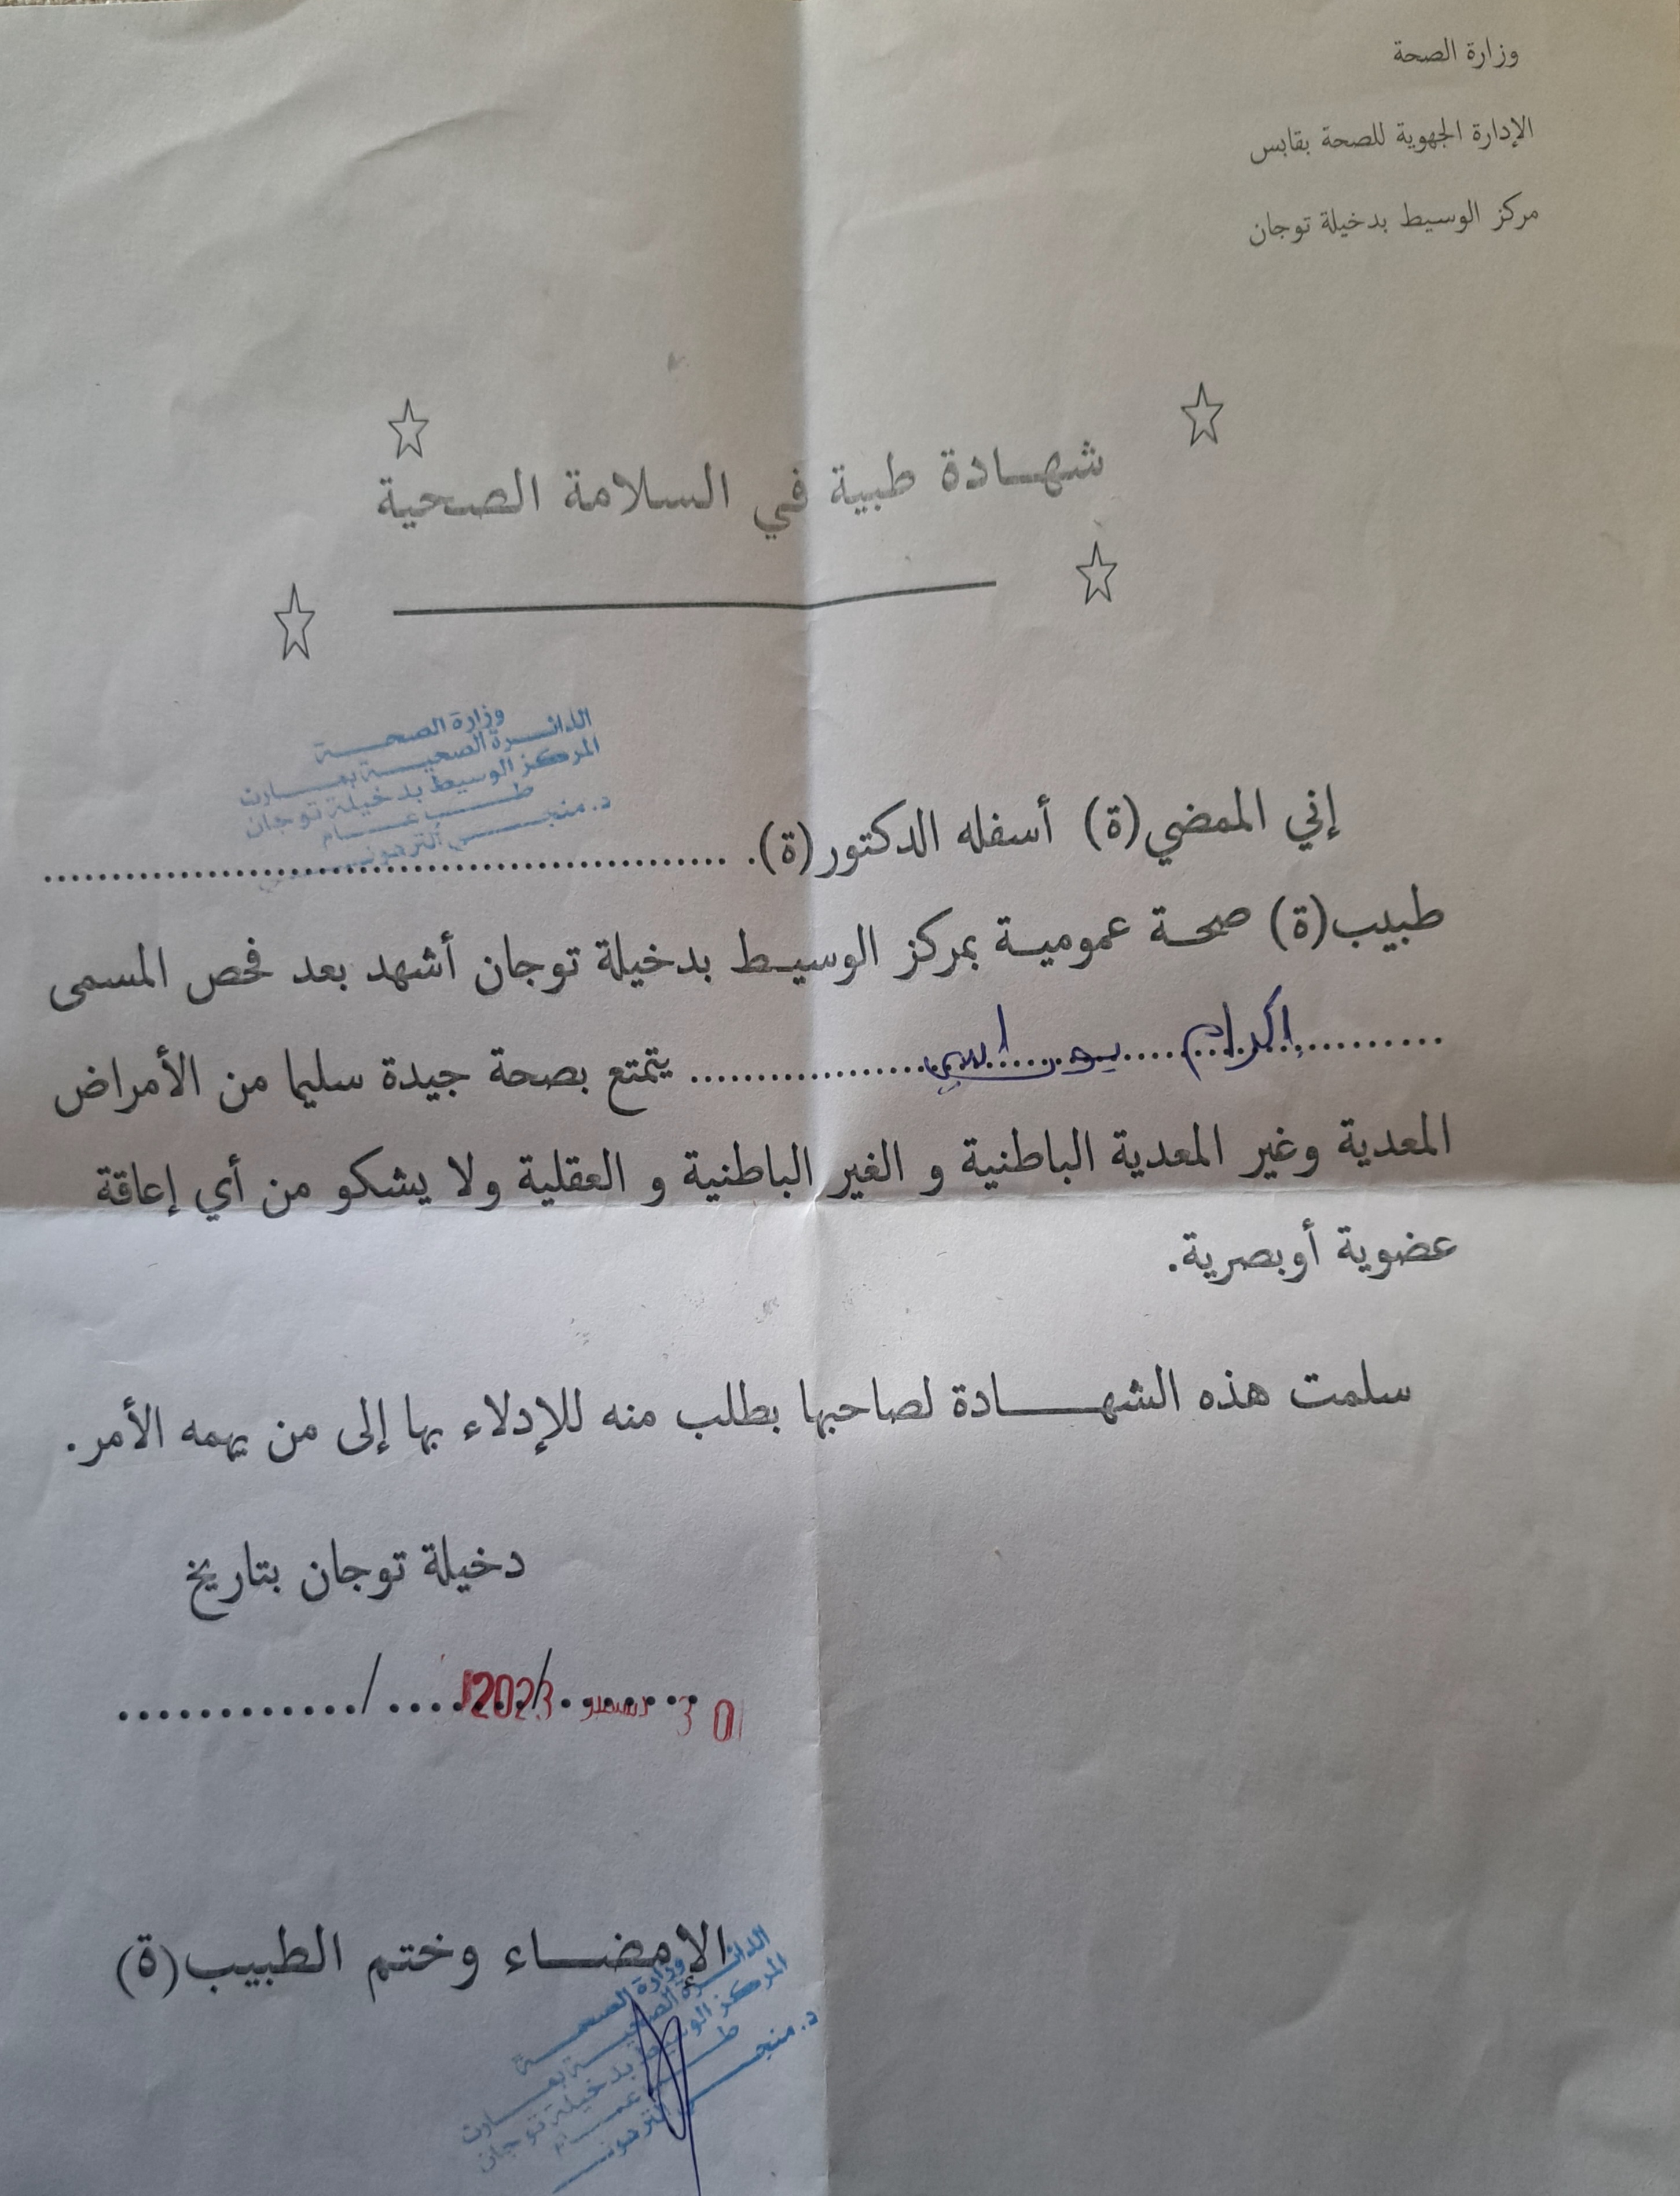 وزارة الصحة
الإدارة الجهوية للصحة بقابس
مركز الوسيط بدخيلة توجان
شهادة طبية في السلامة الصحية
وزارة الصحة
الدائرة الصحية بمارث
المركز الوسيط بدخيلة توجان
طب عام
د. منجي
إني الممضي(ة) أسفله الدكتور(ة). ........................................
طبيب(ة) صحة عمومية بمركز الوسيط بدخيلة توجان أشهد بعد فحص المسمى
إكرام ........ يتمتع بصحة جيدة سليما من الأمراض
المعدية وغير المعدية الباطنية و الغير الباطنية و العقلية ولا يشكو من أي إعاقة
عضوية أوبصرية.
سلمت هذه الشهادة لصاحبها بطلب منه للإدلاء بها إلى من يهمه الأمر.
دخيلة توجان بتاريخ
............/........./.........
2023
الإمضاء وختم الطبيب(ة)
وزارة الصحة
الدائرة الصحية بمارث
المركز الوسيط بدخيلة توجان
طب عام
د. منجي